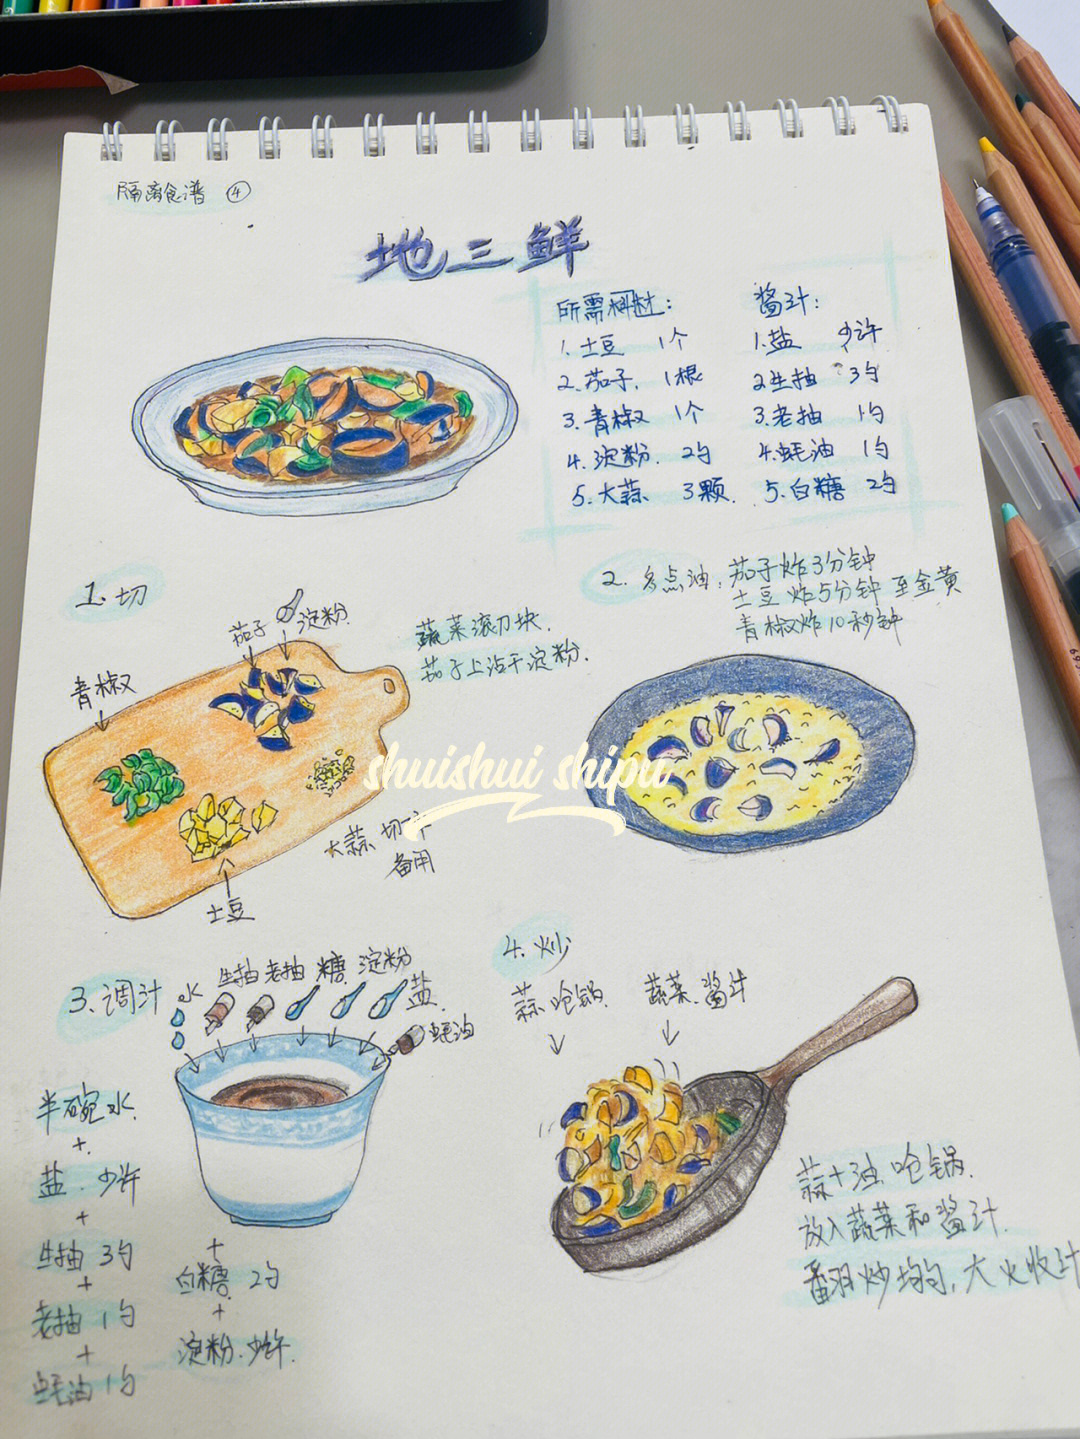 隔离食谱 ④
地三鲜
所需材料:
1. 土豆 1个
2. 茄子. 1根
3. 青椒 1个
4. 淀粉. 2勺
5. 大蒜 3颗.
酱汁:
1. 盐 少许
2 生抽 3勺
3. 老抽 1勺
4. 蚝油 1勺
5. 白糖 2勺
1. 切
茄子
淀粉.
青椒
土豆
大蒜 切一下
备用
蔬菜滚刀块.
茄子上沾干淀粉.
2. 多点油, 茄子炸3分钟
土豆 炸5分钟 至金黄
青椒炸10秒钟
shuishui shipu
3. 调汁
水
生抽 老抽 糖 淀粉
盐
蚝油
半碗水.
+
盐. 少许
+
生抽 3勺
+
老抽 1勺
+
蚝油 1勺
+
白糖 2勺
+
淀粉. 少许.
4. 炒
蒜呛锅. 蔬菜. 酱汁
蒜+油 呛锅.
放入蔬菜和酱汁.
翻炒均匀, 大火收汁